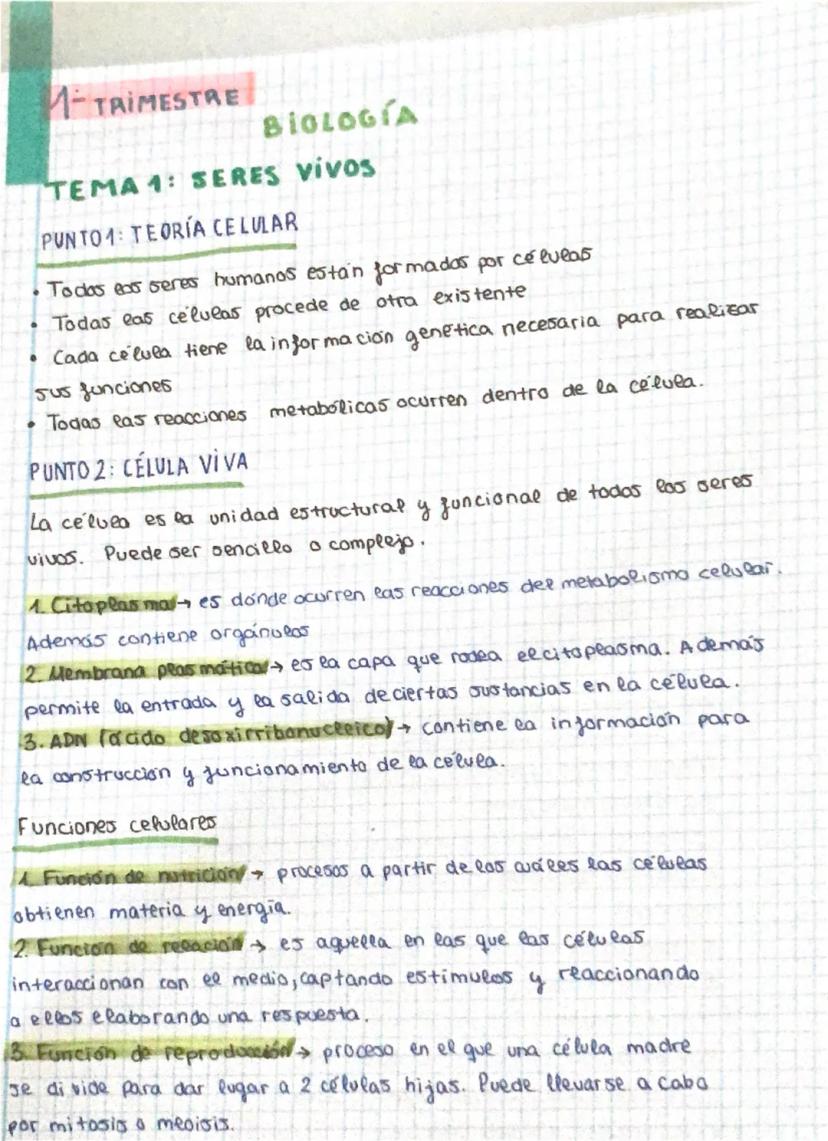 1- TRIMESTRE
BIOLOGÍA
TEMA 1: SERES VIVOS
PUNTO 1: TEORÍA CELULAR
• Todos los seres humanos están formados por células
• Todas las células procede de otra existente
• Cada célula tiene la información genética necesaria para realizar
sus funciones
• Todas las reacciones metabólicas ocurren dentro de la célula.
PUNTO 2: CÉLULA VIVA
La célula es la unidad estructural y funcional de todos los seres
vivos. Puede ser sencillo o complejo.
1. Citoplasma → es donde ocurren las reacciones del metabolismo celular.
Además contiene orgánulos
2. Membrana plasmática → es la capa que rodea el citoplasma. Además
permite la entrada y la salida de ciertas sustancias en la célula.
3. ADN (ácido desoxirribonucleico) → contiene la información para
la construcción y funcionamiento de la célula.
Funciones celulares
1. Función de nutrición → procesos a partir de los cuáles las células
obtienen materia y energía.
2. Función de relación → es aquella en las que las células
interaccionan con el medio, captando estímulos y reaccionando
a ellos elaborando una respuesta.
3. Función de reproducción → proceso en el que una célula madre
se divide para dar lugar a 2 células hijas. Puede llevarse a cabo
por mitosis o meoisis.